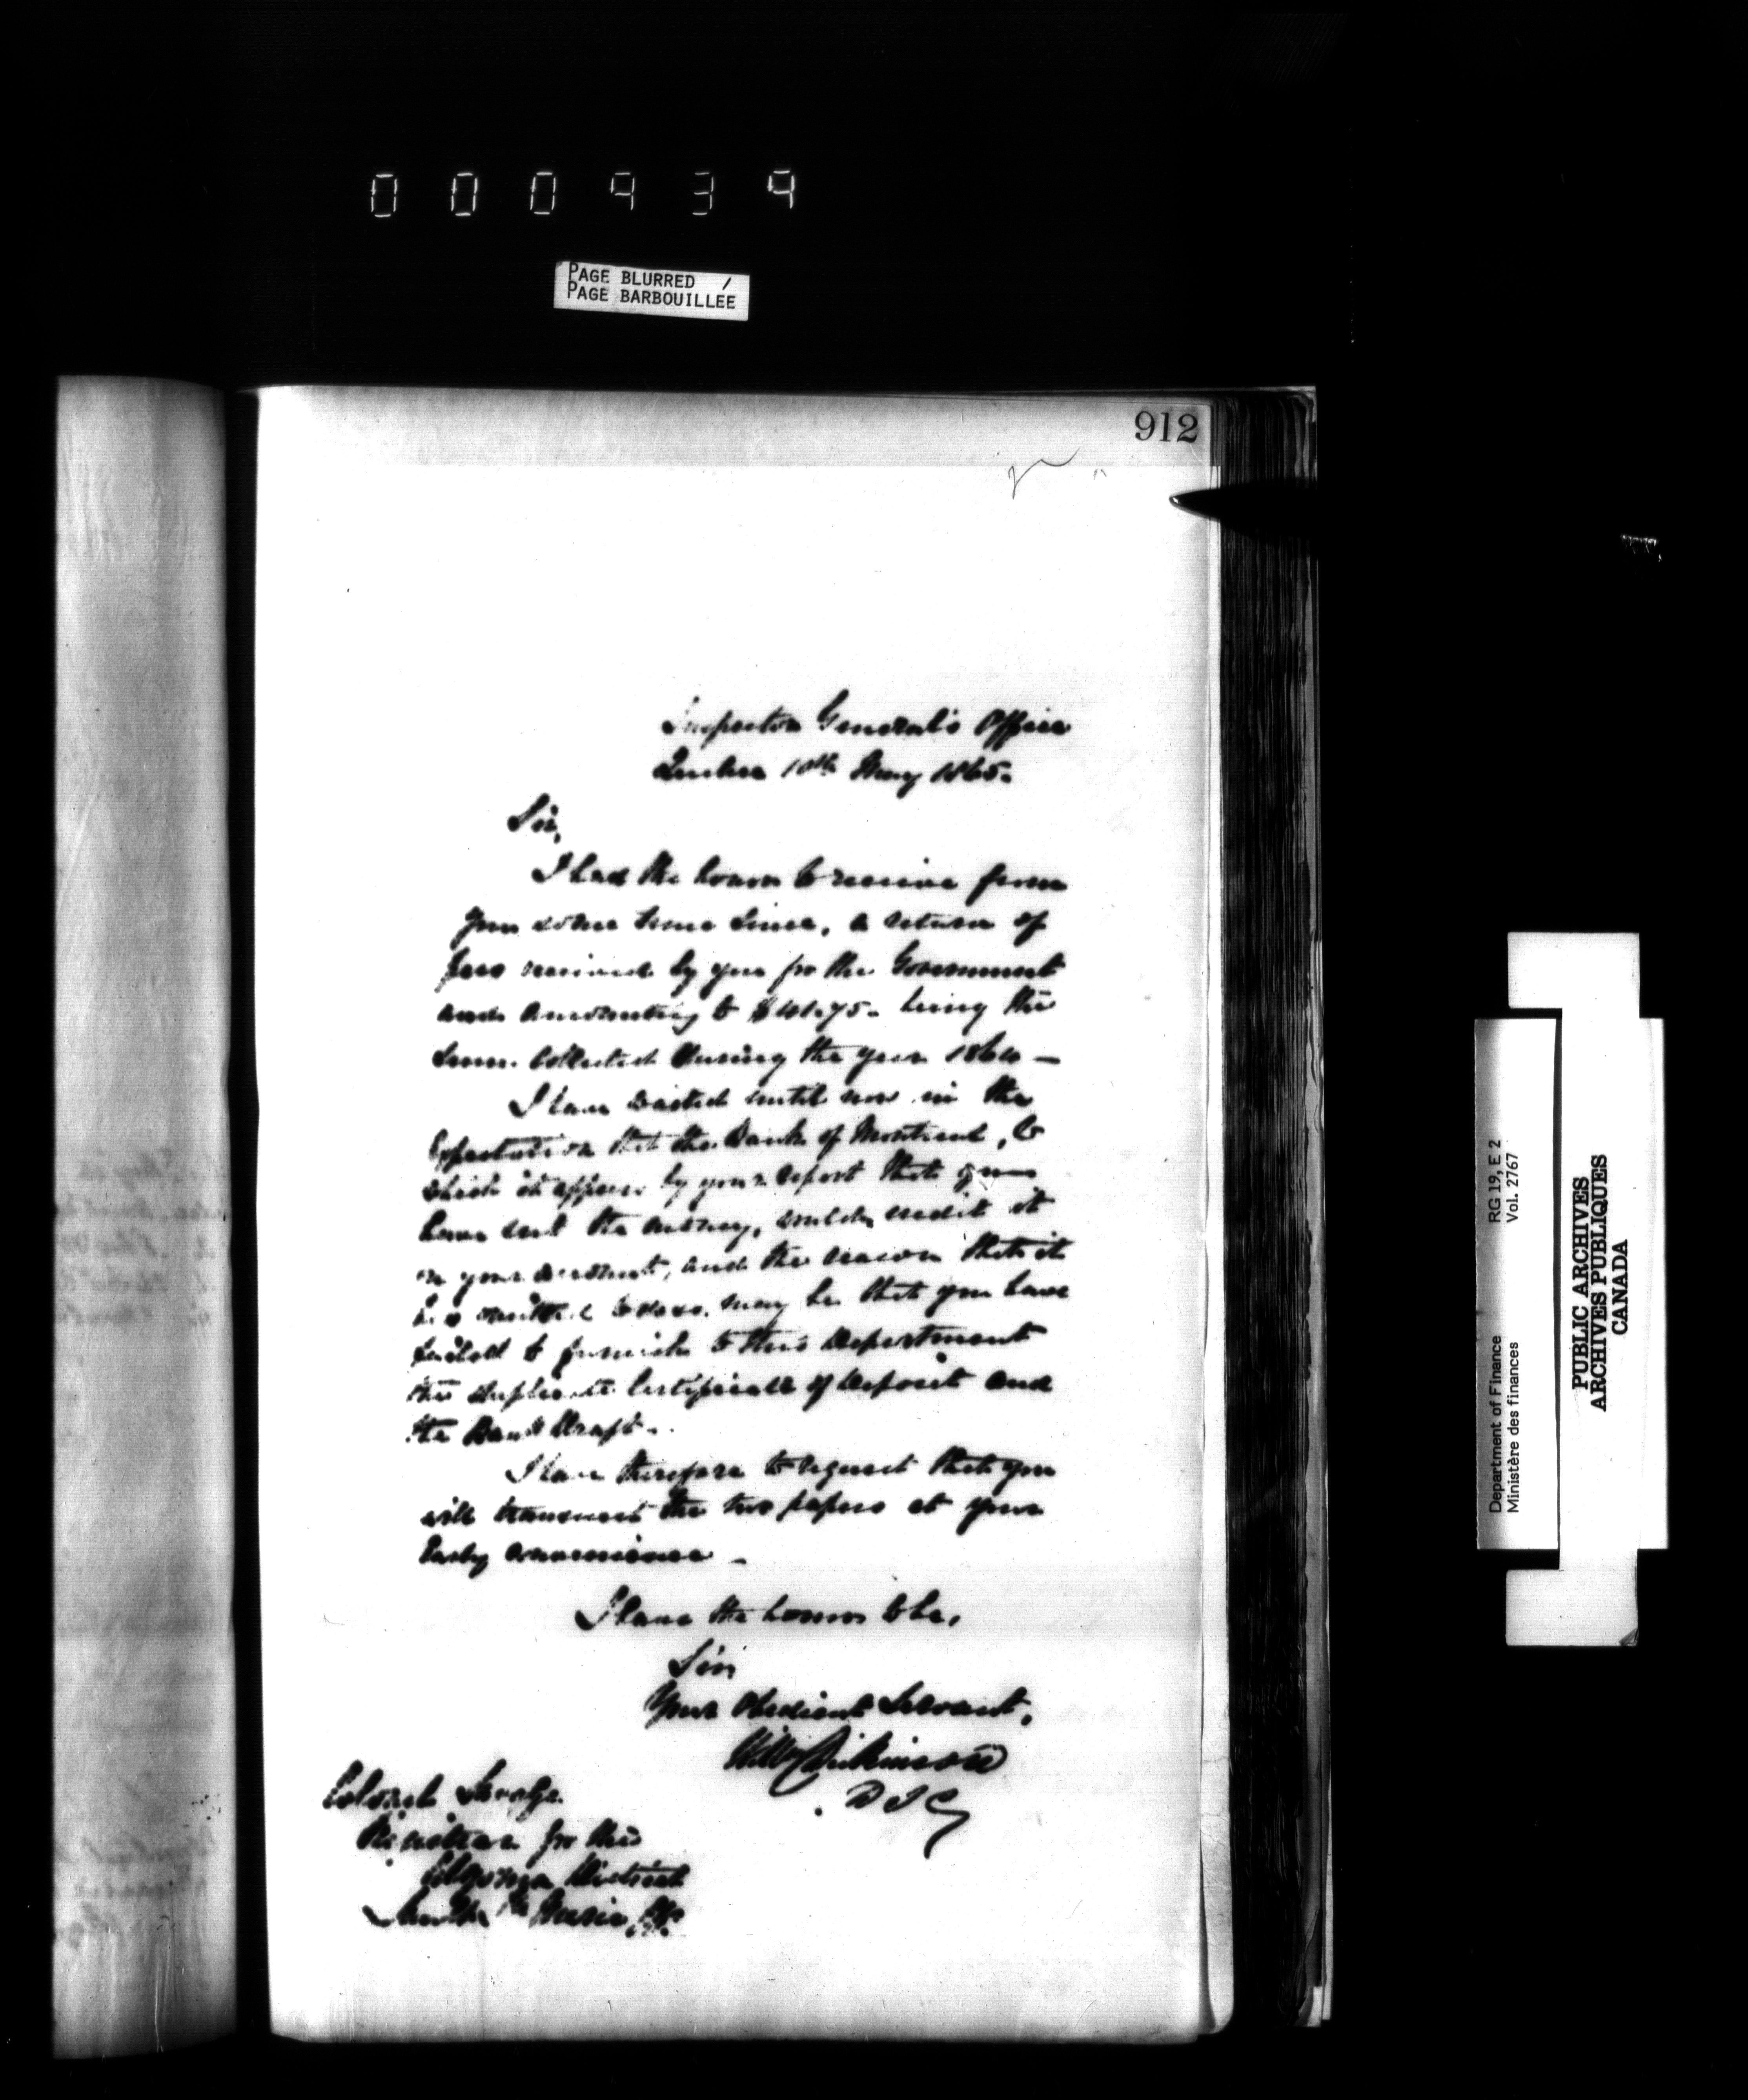 000434
PAGE BLURRED /
PAGE BARBOUILLEE
912
Inspector General's Office
Quebec 10th May 1865.
Sir,
I had the honor to receive from
you some time since, a return of
fees received by you for the Government
and amounting to $41.75. being the
sum collected during the year 1864 —
I have waited until now in the
expectation that the Bank of Montreal, to
which it appears by your report that you
have sent the money, would credit it
in your account, and the reason that it
has omitted to do so. may be that you have
failed to furnish to this Department
the duplicate Certificate of deposit and
the Bank Draft.
I have therefore to request that you
will transmit the two papers at your
early convenience —
I have the honor to be,
Sir,
Your obedient Servant,
Wm Dickinson
D I G
Colonel Savage
Registrar for the
Algoma District
Sault Ste Marie, CW.
Department of Finance RG 19, E 2
Ministère des finances Vol. 2767
PUBLIC ARCHIVES
ARCHIVES PUBLIQUES
CANADA